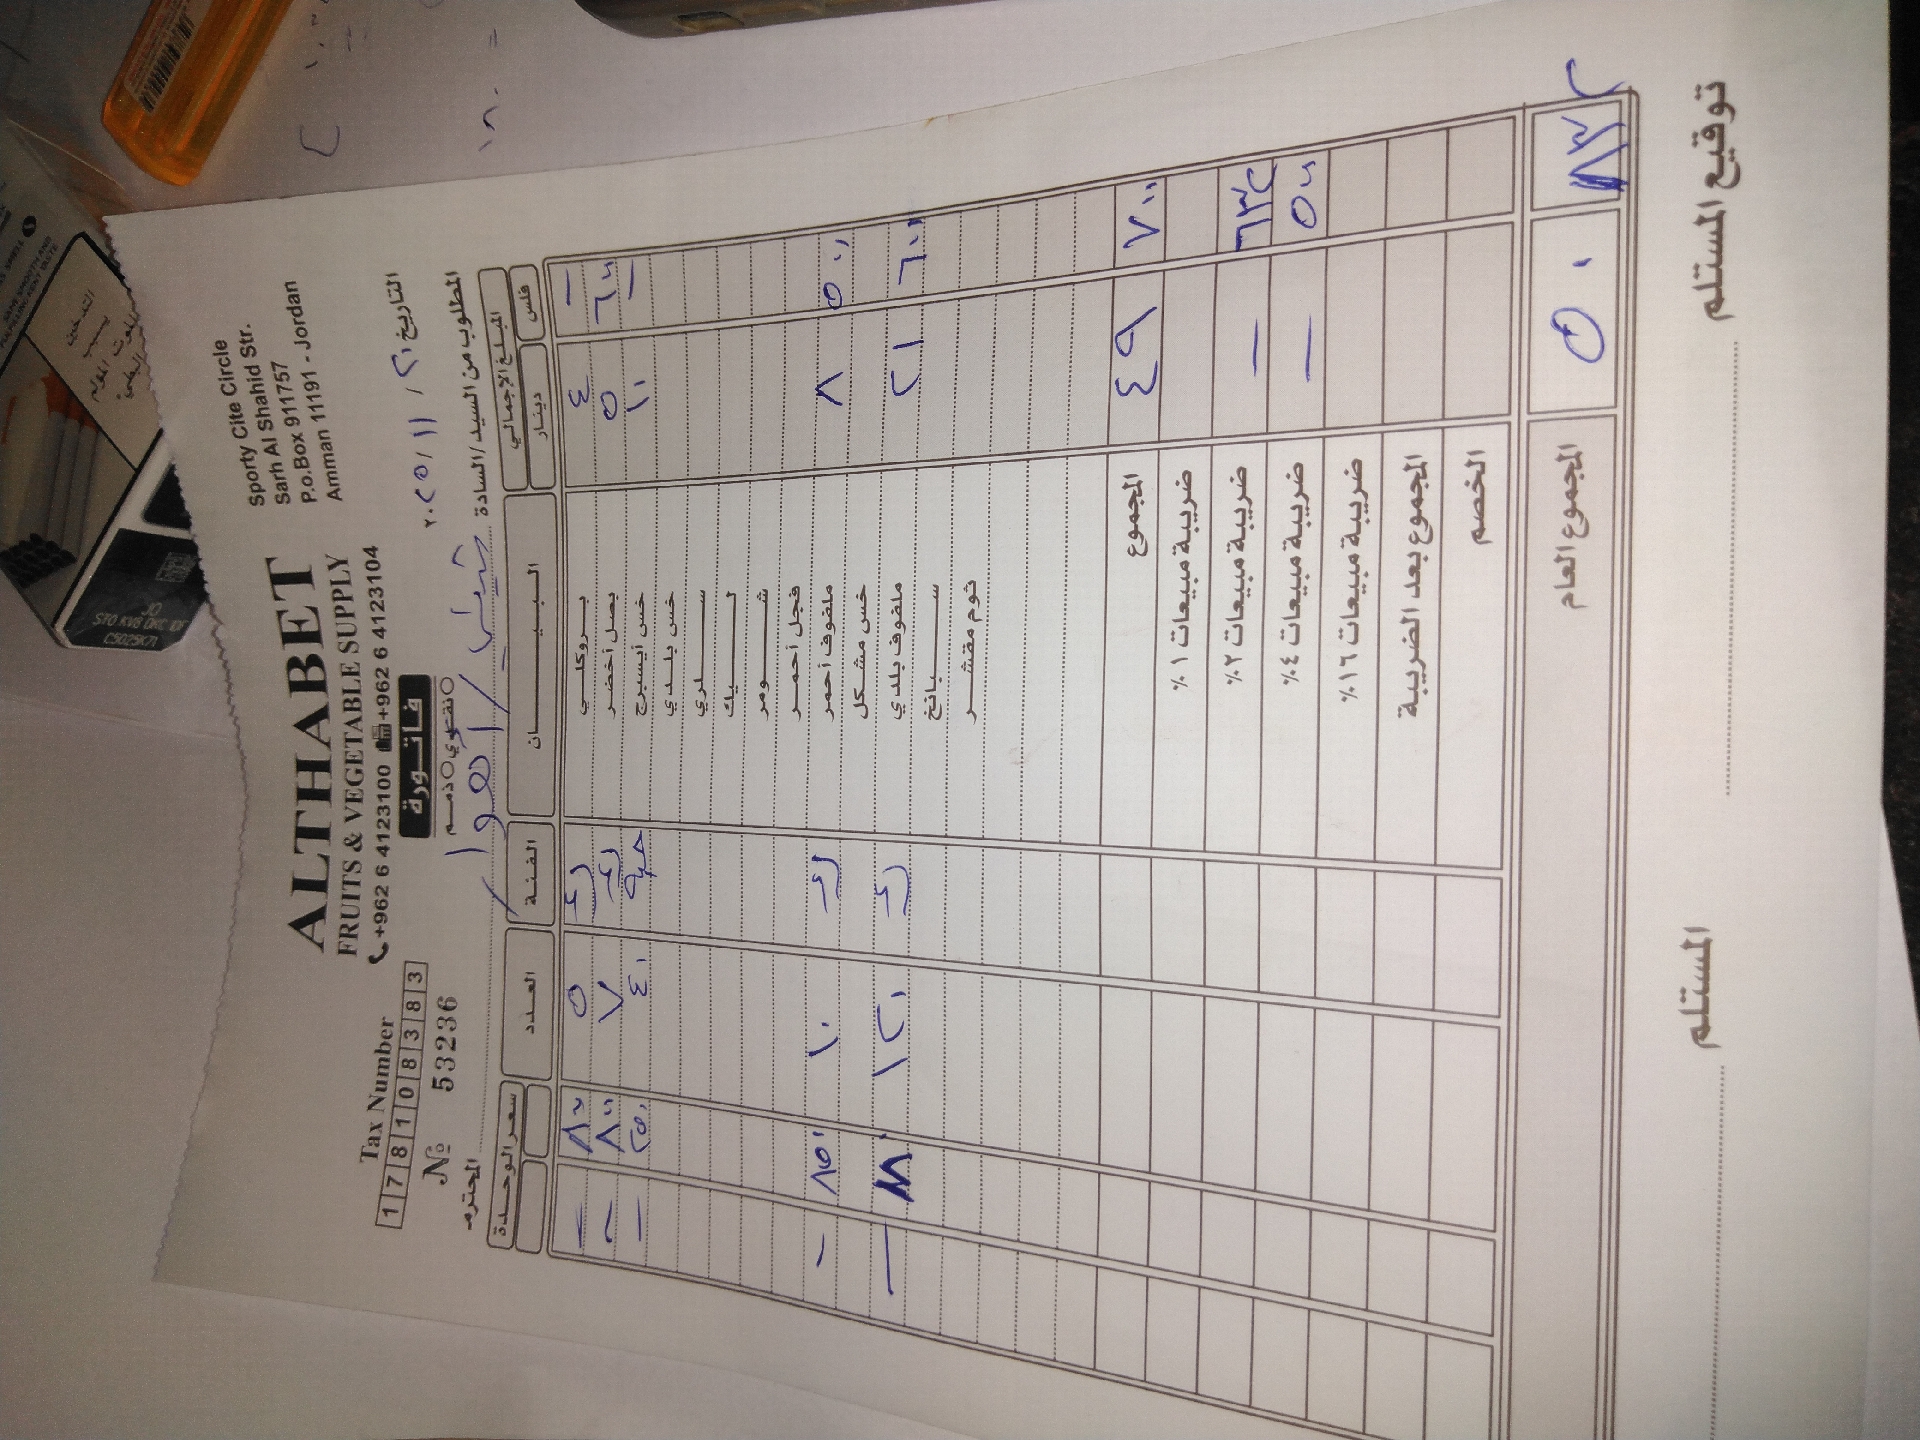 ALTHABET
FRUITS & VEGETABLE SUPPLY
+962 6 4123100 +962 6 4123104
Sporty Cite Circle
Sarh Al Shahid Str.
P.o.Box 911757
Amman 11191 - Jordan
Tax Number
1 7 8 1 0 8 3 8 3
فاتورة
№ 53236
نقدي ذمم
التاريخ ٢١ / ١١ / ٢٠٢٥
المطلوب من السيد/السادة المحترم
المبلغ الإجمالي البيان الفئة العدد سعر الوحدة
دينار فلس
٤ — بروكلي ٥ ٨٠٠ —
٥ ٦٠٠ بصل أخضر ٧ ٨٠٠ —
١٠ — خس أيسبرج حبة ٤٠ ٢٥٠ —
خس بلدي
سلري
ليك
شومر
فجل أحمر
٨ ٥٠٠ ملفوف أحمر ١٠ ٨٥٠ —
خس مشكل
٢١ ٦٠٠ ملفوف بلدي ١٢٠ —
سبانخ
ثوم مقشر
المجموع ٤٩ ٧٠٠
ضريبة مبيعات ١٪
ضريبة مبيعات ٢٪ — ٦٣٢
ضريبة مبيعات ٤٪ — ٥٠٠
ضريبة مبيعات ١٦٪
المجموع بعد الضريبة
الخصم
المجموع العام ٥٠ ٨٣٢
المستلم توقيع المستلم
JO
STO KV8 DKC 1DF
C5025K71